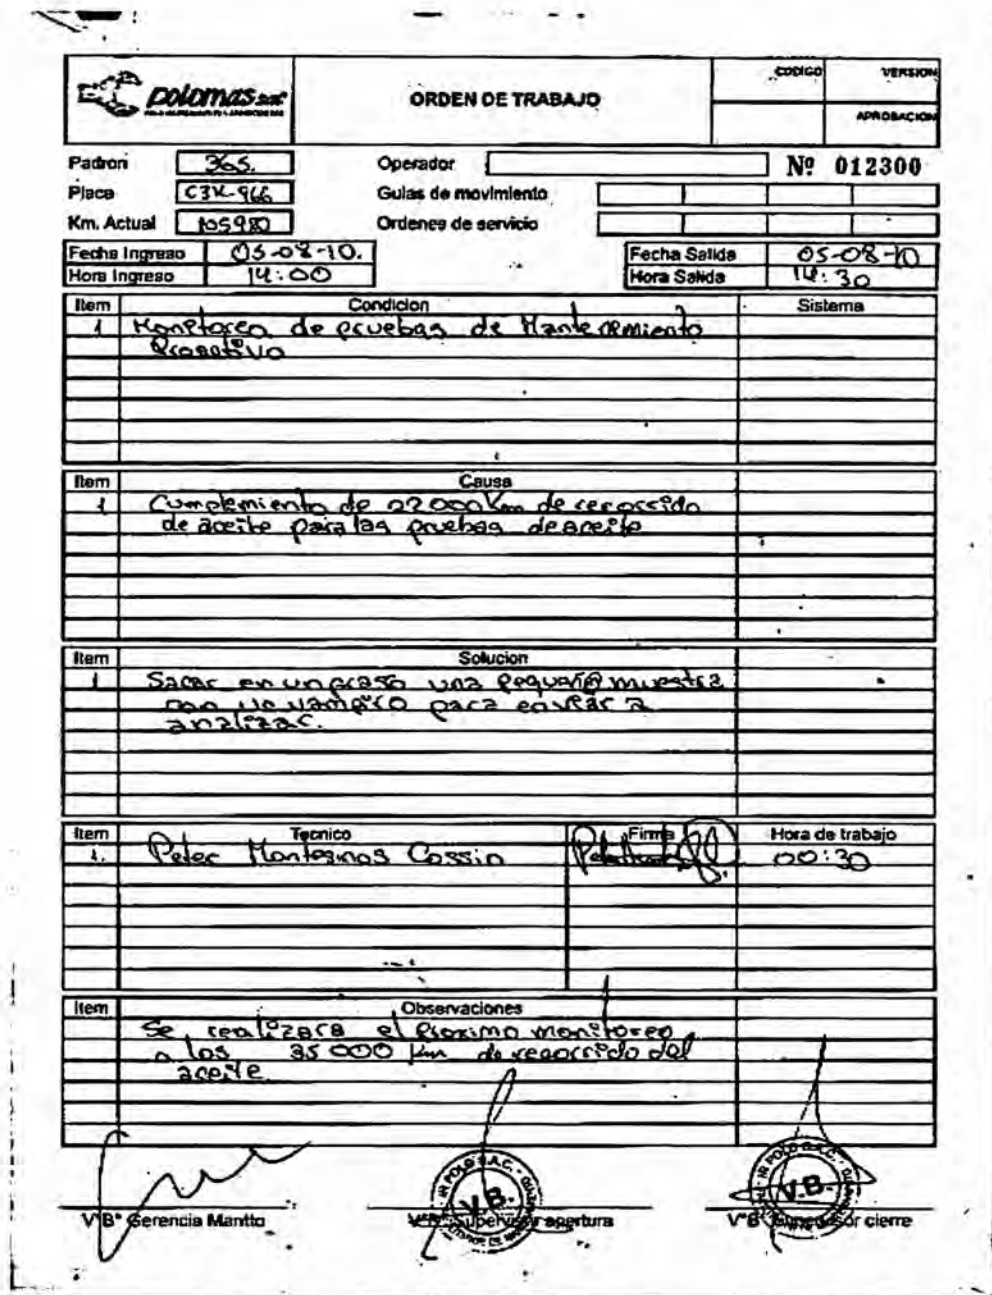 polomas sac
ORDEN DE TRABAJO
CODIGO VERSION
APROBACION
Padron 365. Operador Nº 012300
Placa C3K-966 Guias de movimiento
Km. Actual 105980 Ordenes de servicio
Fecha Ingreso 05-08-10. Fecha Salida 05-08-10
Hora Ingreso 14:00 Hora Salida 14:30
Item Condicion Sistema
1 Monitoreo de pruebas de Mantenimiento
Proactivo
Item Causa
1 Cumplemiento de 22000 Km de recorrido
de aceite para las pruebas de aceite
Item Solucion
1 Sacar en un una pequeña muestra
con un vampiro para enviar a
analizar.
Item Tecnico Firma Hora de trabajo
1. Peter Montesinos Cossio 00:30
Item Observaciones
Se realizara el Proximo monitoreo
a los 35000 Km de recorrido del
aceite.
V°B° Gerencia Mantto V°B° Supervisor apertura V°B° Supervisor cierre
V.B. V.B.